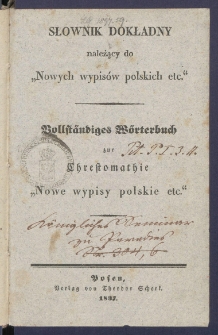 SŁOWNIK DOKŁADNY
należący do
„Nowych wypisów polskich etc.“
Vollständiges Wörterbuch
zur
Chrestomathie
„Nowe wypisy polskie etc.“
Königliches Seminar
zu Paradies
Posen,
Verlag von Theodor Scherk.
1837.